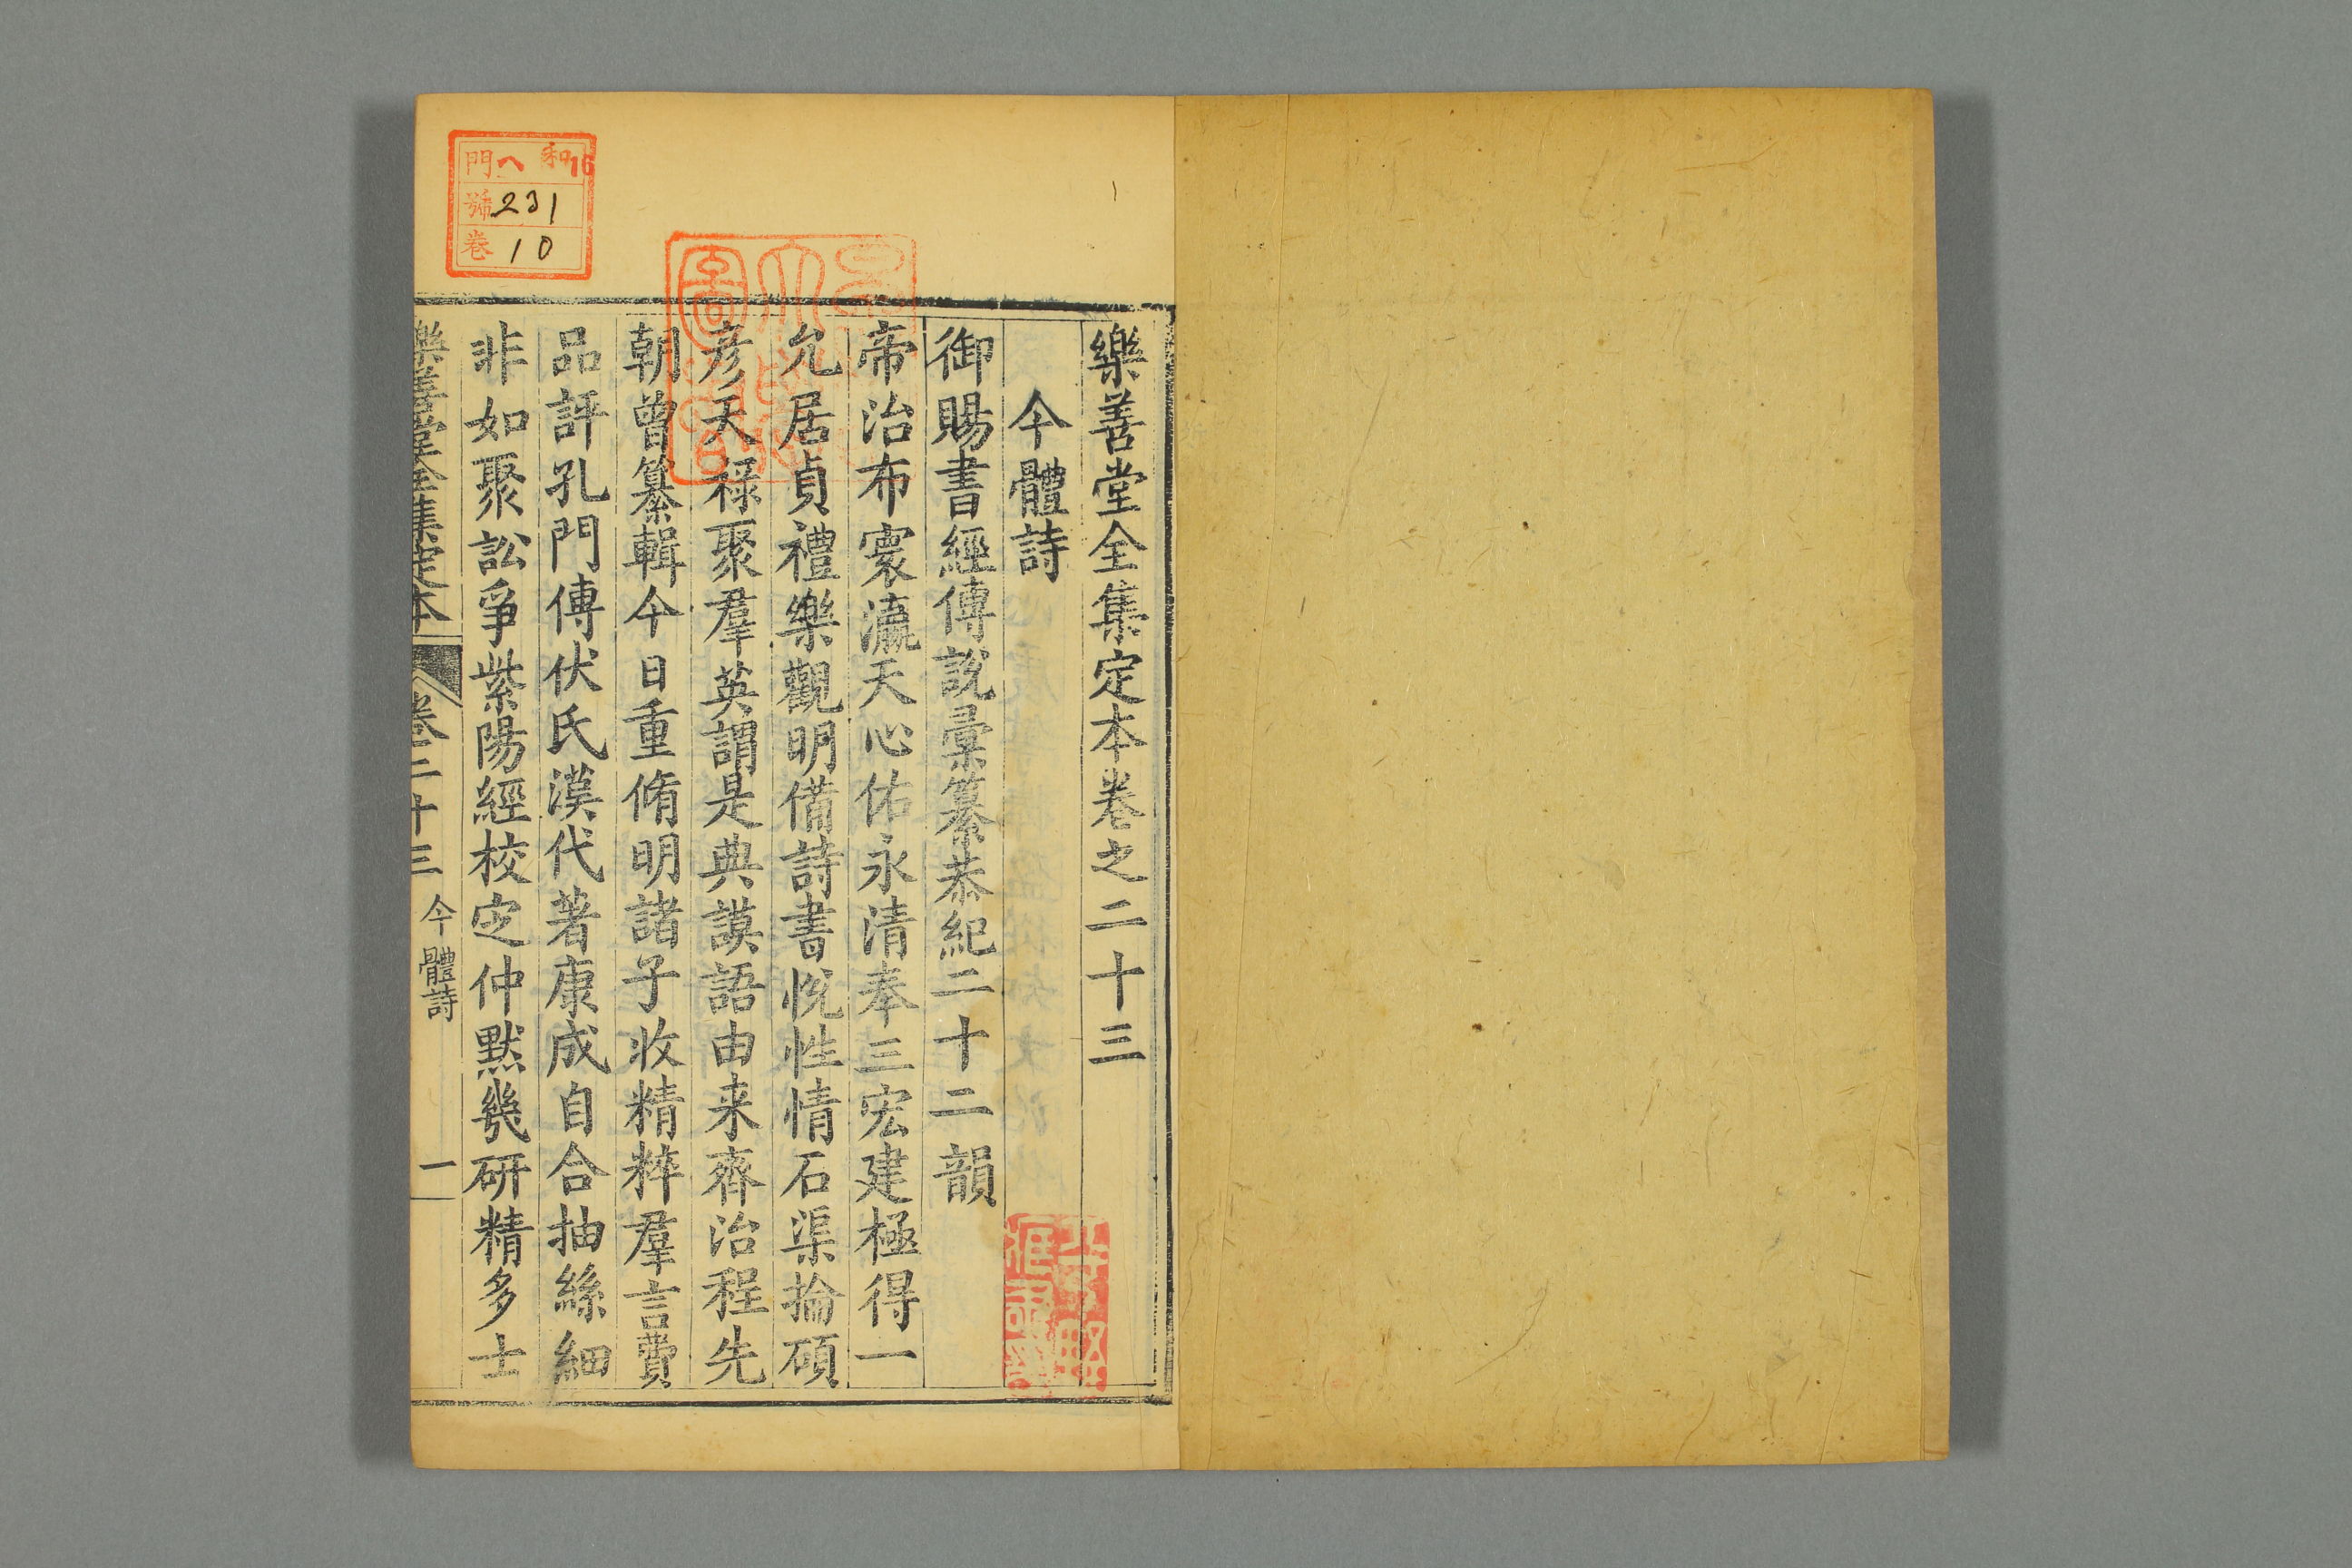 樂善堂全集定本卷之二十三
今體詩
御賜書經傳說彙纂恭紀二十二韻
帝治布寰瀛天心佑永清奉三宏建極得一
允居貞禮樂觀明備詩書悅性情石渠掄碩
彥天祿聚羣英謂是典謨語由来齊治程先
朝曾纂輯今日重脩明諸子收精粹羣言費
品評孔門傳伏氏漢代著康成自合抽絲細
非如聚訟爭紫陽經校定仲默幾研精多士
樂善堂全集定本 卷二十三 今體詩 一
門 八 和 16
號 231
卷 10